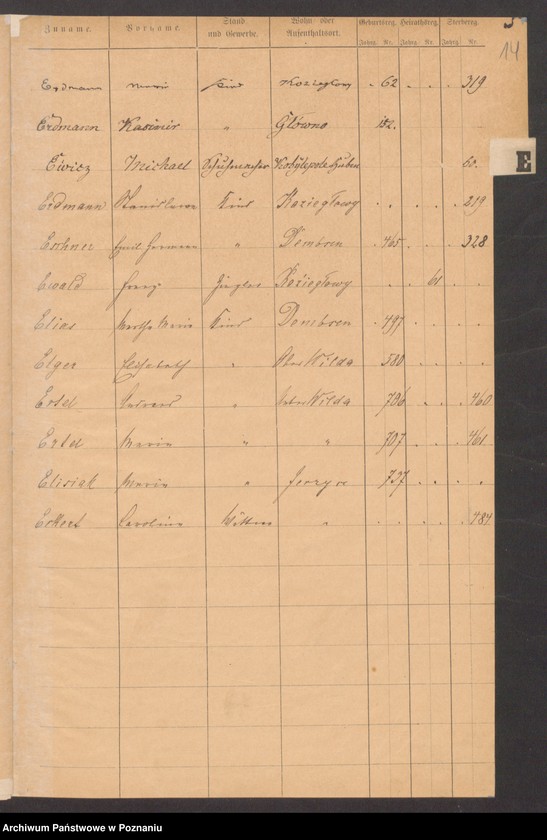 14
Zuname. Vorname. Stand und Gewerbe. Wohn- oder Aufenthaltsort. Geburtsreg. Heirathsreg. Sterbereg.
Jahrg. Nr. Jahrg. Nr. Jahrg. Nr.
E
Erdmann Marie Kind Koziegłowy 62 319
Erdmann Kasimir " Główno 152.
Ewicz Michael Schuhmacher Kobylepole Huben 60.
Erdmann Stanislaus Kind Koziegłowy 219
Emil Hermann " Dombsen 465 328
Ewald Franz Ziegler Koziegłowy 61
Elias Martha Maria Kind Dombsen 497
Elger Elisabeth " Ober Wilda 580
Ertel " Unter Wilda 786 460
Ertel Maria " " 787 461
Elisiak Maria " Jerzyce 737
Eckert Carolina Wittwe " 484
Archiwum Państwowe w Poznaniu